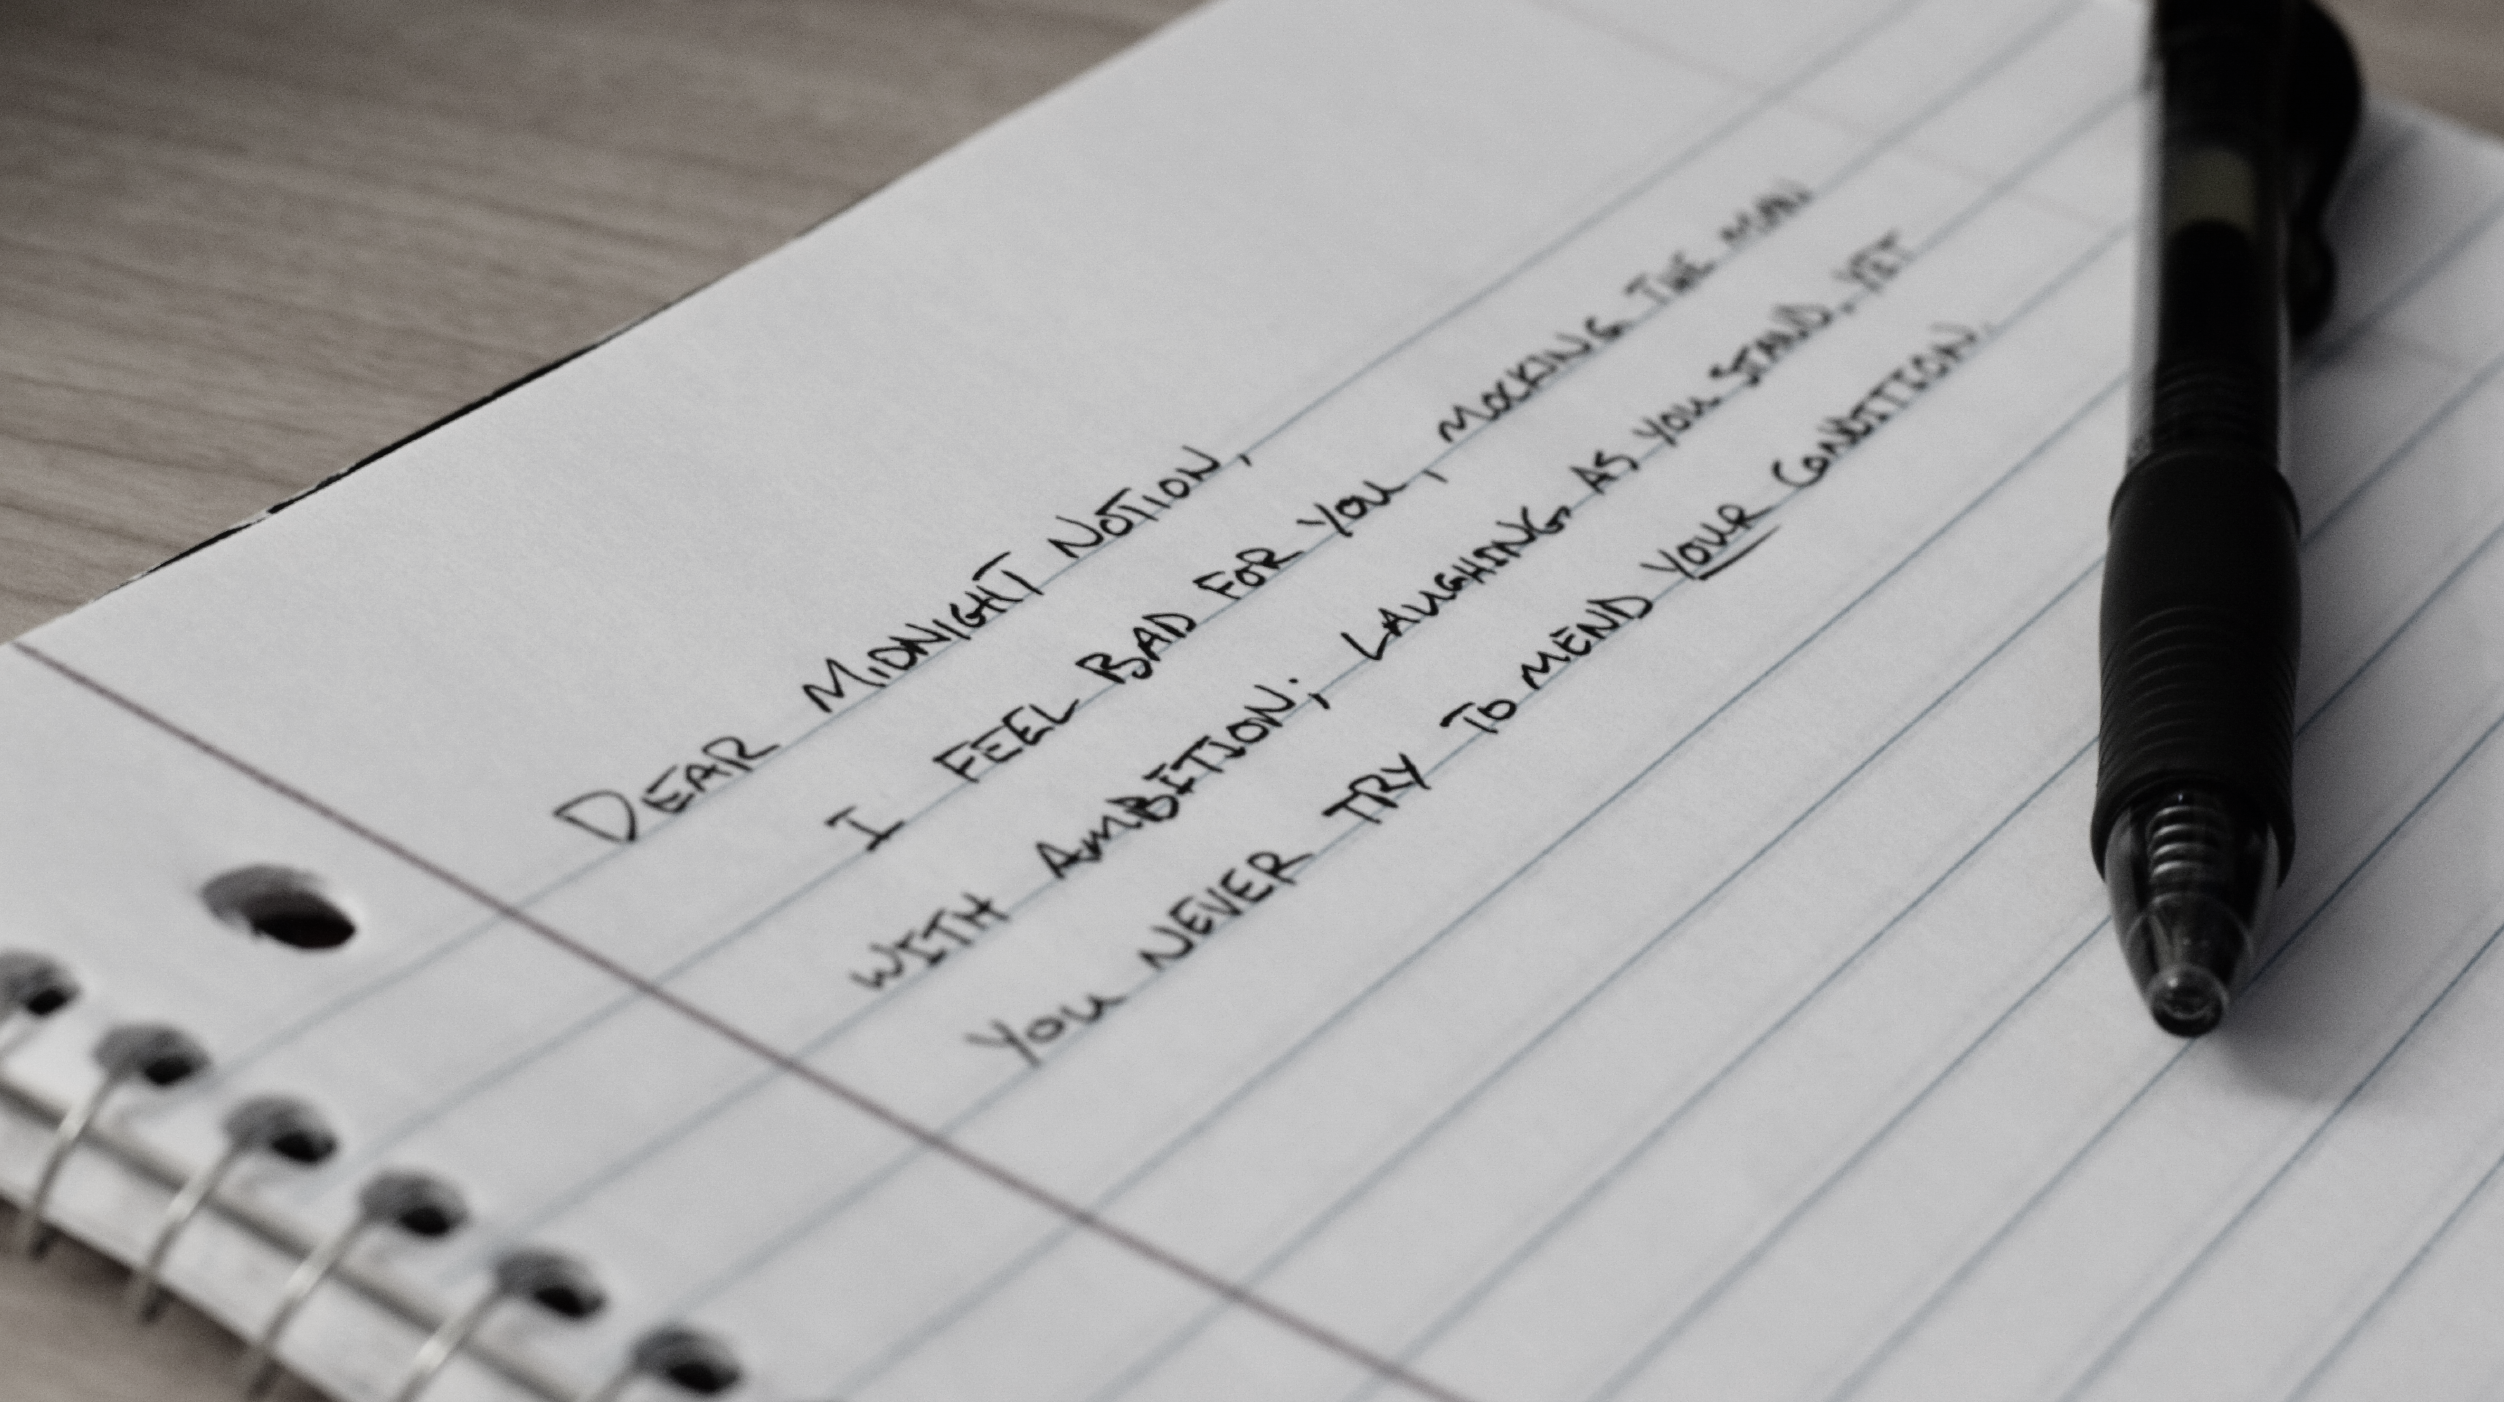 DEAR MIDNIGHT NOTION,
I FEEL BAD FOR YOU, MOCKING THE MOON
WITH AMBITION; LAUGHING AS YOU STAND, YET
YOU NEVER TRY TO MEND YOUR CONDITION.